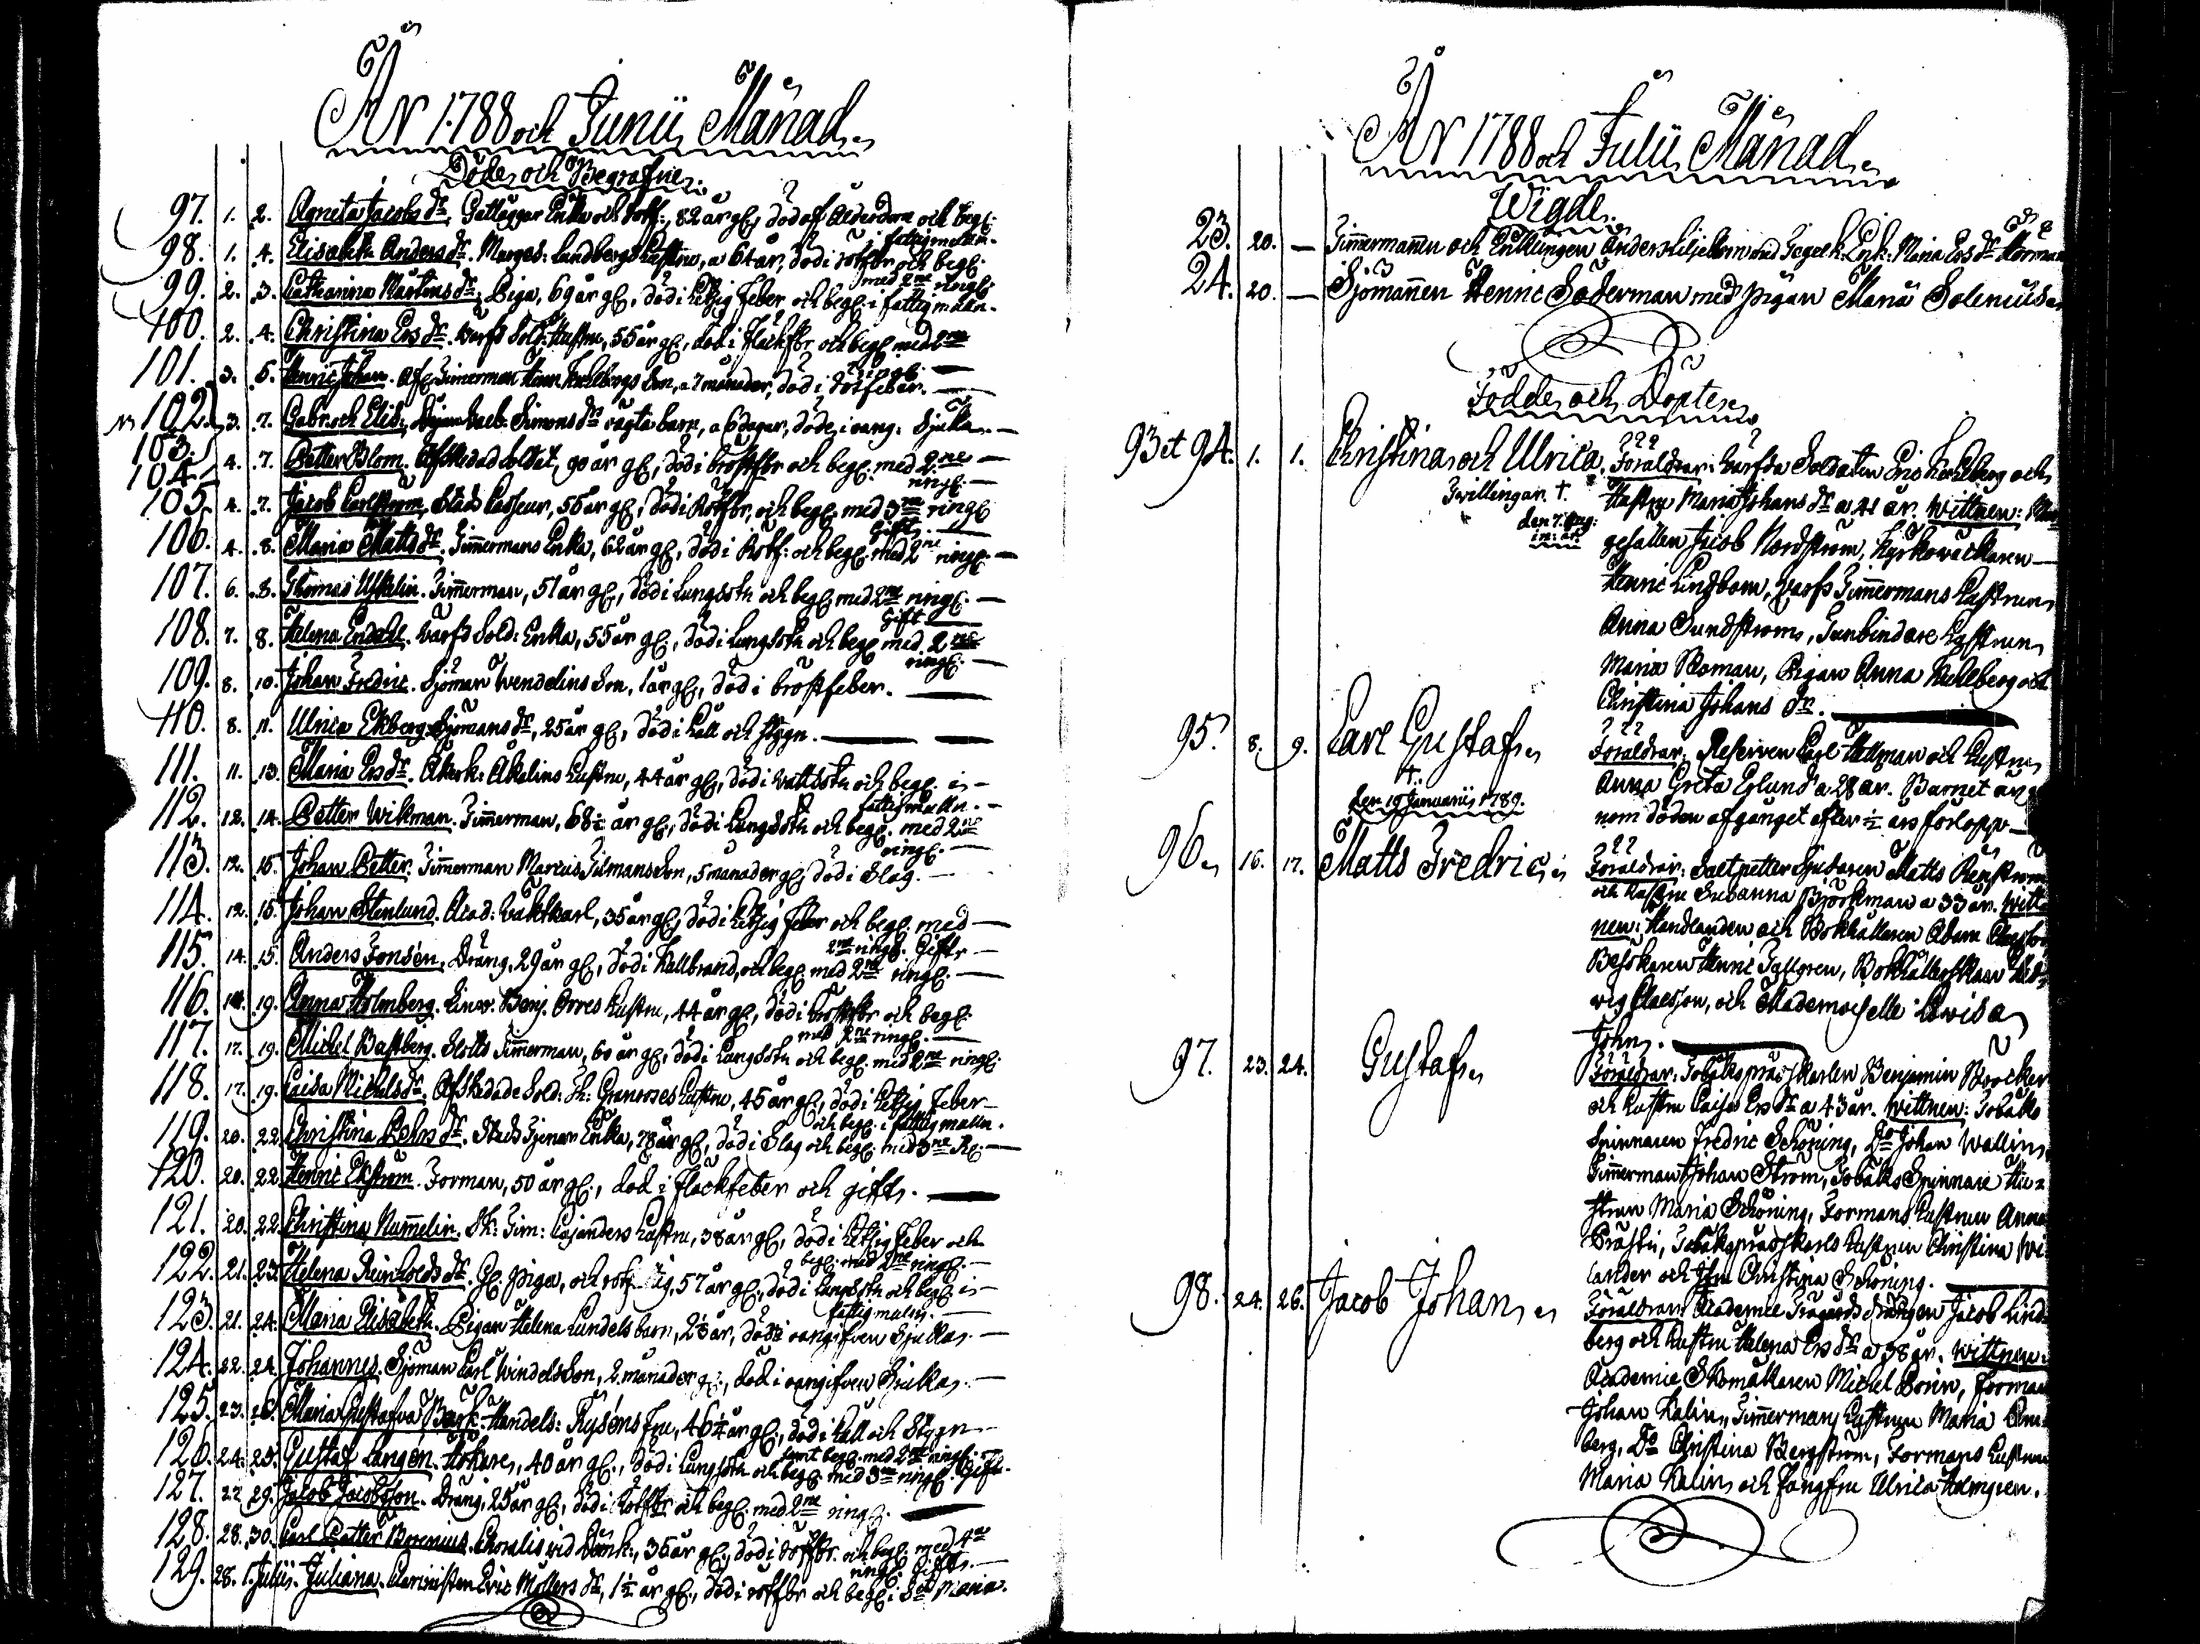 År 1788 och Junii Månad.
Döde och Begrafne.
97. 1. 2. Agneta Jacobs dr. Gatläggar Enka och rotf:, 82 år gl., död af Ålderdom och begl:
fattigmalln.
98. 1. 4. Elisabeth Anders dr. Lundbergs hustru, a 64 år, död i rötfbr och begl:
med 2ne ringl:
99. 2. 3. Catharina Mårtens dr. Piga, 69 år gl., död i hetzig feber och begl: i fattig malln.
100. 2. 4. Christina Ers dr. Varfs Sold: hustru, 55 år gl., död i fläckfbr och begl: med
ringl:
101. 3. 5. Henric Johan. Zimmerman son, a 7 månader, död i rötfeber.
102. 3. 7. Gabr: och Elis: Simons dr oägta barn, a 6 dagar, döde i oang: Sjuka.
103.
104. 4. 7. Petter Blom. Afskedad Soldat, 90 år gl., död i bröstfbr och begl: med 2ne
ringl:
105. 4. 7. Jacob, 56 år gl., död i Rötfbr, och begl: med 3ne ringl:
Gifts
106. 4. 8. Maria Matts dr. Zimmermans Enka, 62 år gl., död i Rötf: och begl: med 2ne ringl:
107. 6. 8. Thomas. Zimmerman, 51 år gl., död i Lungsotn och begl: med 2ne ringl:
Gift
108. 7. 8. Helena. Varfs Sold: Enka, 55 år gl., död i Lungsotn och begl: med 2ne
ringl:
109. 8. 10. Johan Fredric. Sjöman Wendelins Son, 1 år gl., död i bröstfeber.
110. 8. 11. Ulrica Ekberg. Sjömans dr, 25 år gl., död i håll och stygn.
111. 11. 13. Maria Ers dr. Åkerk: Åkelins hustru, 44 år gl., död i wattsotn och begl: i
fattigmalln.
112. 12. 14. Petter Wikman. Zimmerman, 68½ år gl., död i Lungsotn och begl: med 2ne
ringl:
113. 12. 15. Johan Petter. Zimmerman Marcus Tilmans Son, 5 månader gl., död i Slag.
114. 12. 15. Johan Stenlund. Acad: Vaktkarl, 35 år gl., död i hetzig feber och begl: med
2ne ringl: Gifts
115. 14. 15. Anders Jonsén. Dräng, 29 år gl., död i Kallbrand, och begl: med 2ne ringl:
116. 14. 19. Anna Holmberg. Benj. Orres hustru, 44 år gl., död i bröstfbr och begl:
med 2ne ringl:
117. 17. 19. Michel Bastberg. Slotts Zimmerman, 60 år gl., död i Lungsotn och begl: med 2ne ringl:
118. 17. 19. Caisa Michels dr. Afskedade Sold: Granroses hustru, 45 år gl., död i hetzig feber
och begl: i fattig malln.
119. 20. 22. Christina Pehrs dr. Enka, 78 år gl., död i Slag och begl: med 3ne
120. 20. 22. Henric Ekström. Forman, 50 år gl., död i fläckfeber och gifts.
121. 20. 22. Christina Numelin. Cajanders hustru, 38 år gl., död i hetzig feber och
begl: med 2ne ringl:
122. 21. 23. Helena Reinholds dr. Gl. Piga, och, 57 år gl., död i Lungsotn och begl: i
fattigmalln.
123. 21. 24. Maria Elisabeth. Pigan Helena Lundels barn, 2½ år, död i oangifven Sjuka.
124. 22. 24. Johannes. Sjöman Carl Windels Son, 2 månader gl., död i oangifven Sjuka.
125. 23. 26. Maria Gustafva. Handels: Fru, 46¼ år gl., död i håll och Stygn
samt begl: med 2ne ringl:
126. 24. 25. Gustaf Langen. Hökare, 40 år gl., död i Lungsotn och begl: med 3ne ringl: Gift.
127. 27. 29. Jacob Jacobsson. Dräng, 25 år gl., död i rötfbr och begl: med 2ne ringl:
128. 28. 30. Carl Petter Borenius. Choralis vid Domk:, 36 år gl., död i rötfbr och begl: med 4ne
ringl: Gifts.
129. 28. 1. Julii. Juliana. Eric Möllers dr, 1½ år gl., död i rötfbr och begl: i St Maria.
År 1788 och Julii Månad.
Wigde.
23. 20. — Zimmermannen och Enklingen Anders Liljebom med Enk: Maria Ers dr
24. 20. — Sjömannen Henric Söderman med pigan Maria
Födde och Döpte.
93 et 94. 1. 1. Christina och Ulrica. Föräldrar: Varfs Soldaten Eric och
Zwillingar. †. Hustru Maria Johans dr a 41 år. Wittnen:
den 7. Aug: gesällen Jacob Nordström, Kyrkowäktaren
Henric Lindbom, Varfs Zimmermans hustrun
Anna Sundströms, Tunbindare hustrun
Maria Boman, Pigan Anna och
Christina Johans dr.
95. 8. 9. Carl Gustaf. Föräldrar: Reserven Carl Hellman och hustrun
†. Anna Greta Eglund a 28 år. Barnet är ge
den 19 Januarii 1789. nom döden afgånget efter ½ års förlopp
96. 16. 17. Matts Fredric. Föräldrar: Saltpetter Sjudaren Matts Renström
och hustru Susanna Björkman a 33 år. Witt
nen: Handlanden och Bokhållaren Adam
Besökaren Henric Tallgren, Bokhållerskan Hed
wig Claesson, och Mademoiselle Lovisa
John.
97. 23. 24. Gustaf. Föräldrar: Tobaksprässkarlen Benjamin Bröcker
och hustru Caisa Ers dr a 43 år. Wittnen: Tobaks
Spinnaren Fredric Schöning, Do Johan Wallin,
Zimmerman Johan Ström, Tobaks Spinnare Hu
strun Maria Schöning, Formans hustrun Anna
Tobaksprässkarls hustrun Christina Wi
lander och Christina Schöning.
98. 24. 26. Jacob Johan. Föräldrar: Academie Trägårds drängen Jacob Lind
berg och hustru Helena Ers dr a 38 år. Wittnen:
Academie Skomakaren Michel, Forman
Johan Kalin, Zimmermans hustrun Maria
berg, Do Christina Bergström, Formans hustrun
Maria Kalin och Jungfru Ulrica Holmgren.